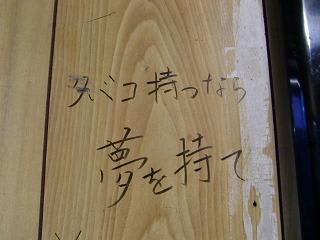 タバコ持つなら
夢を持て